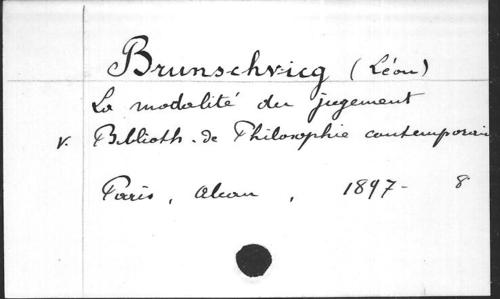 Brunschvicg (Léon)
La modalité du jugement
v. Biblioth. de Philosophie contemporain
Paris, Alcan, 1897- 8